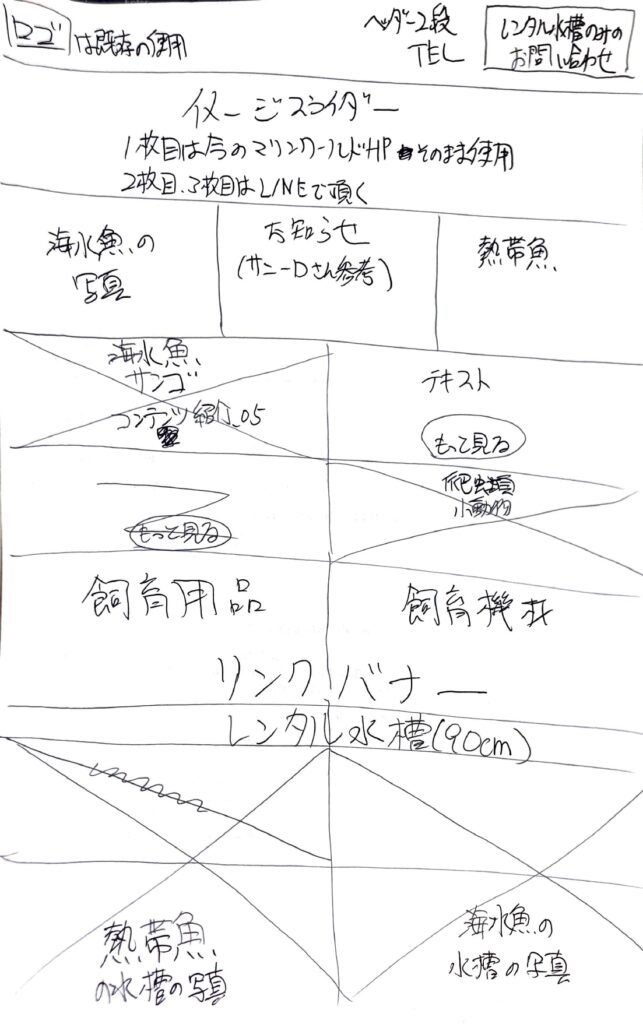 ロゴ
は既存の使用
ヘッダー2段
TEL
レンタル水槽のみの
お問い合わせ
イメージスライダー
1枚目は今のマリンワールドHPそのまま使用
2枚目、3枚目はLINEで頂く
海水魚の
写真
お知らせ
(サニーDさん参考)
熱帯魚
海水魚
サンゴ
コンテンツ紹介_05
テキスト
もって見る
もって見る
爬虫類
小動物
飼育用品
飼育機材
リンクバナー
レンタル水槽(90cm)
熱帯魚
の水槽の写真
海水魚の
水槽の写真